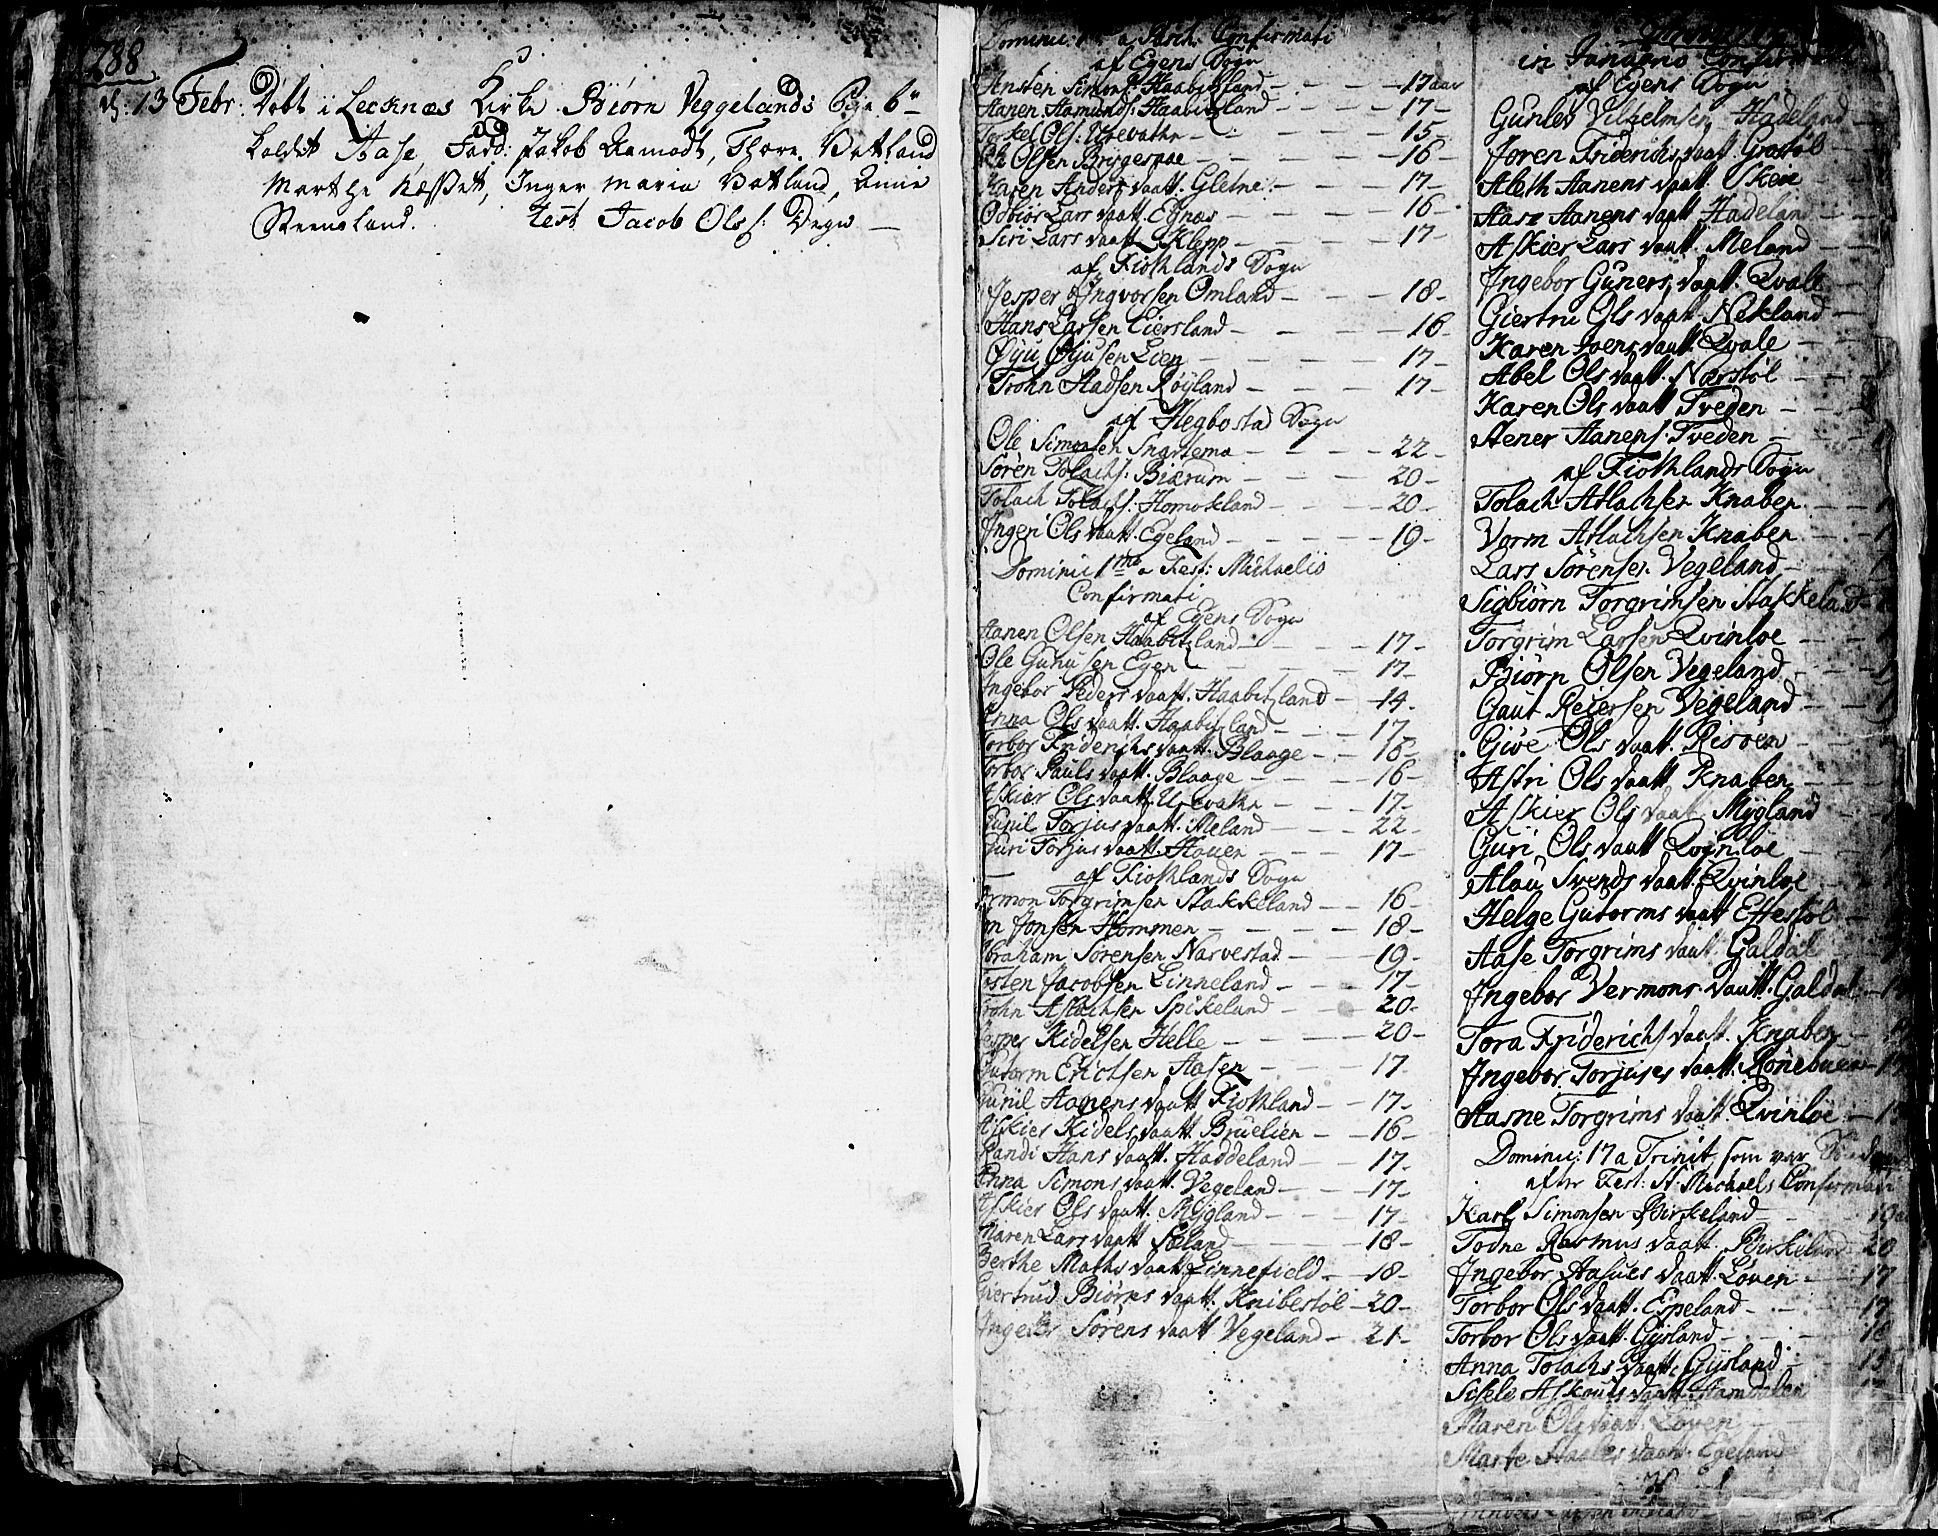 288
d: 13 Febr: Döbt i Lecknæs Kirke Biörn Veggelands Pige b:
kaldet Aase, Fadd: Jakob Aamodt, Thore Vatland
Marthe Næsset, Inger Maria Vatland, Anne
Steensland. Test Jacob Ols: Degn —
Dominic: 1 a Pasch. Confirmati
af Egens Sogn
Ansten Simons: Haabitzland - - - 17 aar
Aanen Aamunds: Haabitzland - - 17-
Terkel Ols: Urevatne - - 15-
Olsen Bryggesaae - - - 16-
Karen Anders daatt. Gletne - - 17-
Odbiör Lars daatt Egnæs - - - 16-
Siri Lars daatt Klepp - - - 17-
af Fiotlands Sogn
Jesper Ingvorsen Omland - - - 18-
Hans Larssen Eiersland - - - 16
Öÿu Öÿusen Lien - - - 17-
Trohn Stadsen Röÿland - - - 17-
af Hegbostad Sogn
Ole Simonsen Snartemo - - - 22-
Sören Tolachs: Biærum - - - 20-
Tolach Tolachs: Homokland - - - 20-
Ingeri Ols daatt. Egeland - - - 19-
Dominic 1ma a Fest: Michaelis
Confirmati
af Egens Sogn
Aanen Olsen Haabitzland - - - 17-
Ole Gunusen Egen - - - 17-
Ingebor Peders daatt. Haabitzland - 14-
Anna Ols daatt. Haabitzland - - 17-
Torbor Friderichs daatt. Blaage - - 16-
Torbor Pauls daatt. Blaage - - - 16-
Askier Ols daatt. Urevatne - - - 17-
Gunil Torjus daatt. Meland - - - 22-
Guri Torjus daatt. Hauen - - - 17-
af Fiotlands Sogn
Vermon Torgrimsen Stakkeland - - 16-
Jon Jonsen Hommen - - - 18-
Abraham Sörensen Narvestad - - 19-
Tosten Jacobsen Linneland - - - 17-
Trohn Aslachsen Spikeland - - - 20-
Jesper Kidelsen Helle - - - 20-
Gutorm Erichsen Aasen - - - 17-
Gunil Aanens daatt Fiotland - - 17-
Askier Kidels daatt. Bruelien - - 16-
Randi Hans daatt. Haddeland - - 17-
Anna Simons daatt. Vegeland - - 17-
Askier Ols daatt. Mÿgland - - - 17-
Maren Lars daatt Soland - - - 18-
Berthe Maths daatt Linnefield - - 18-
Giertrud Biörns daatt. Knibestöl - 20-
Ingebor Sörens daatt Vegeland - 21-
in Januario Confirmati
af Egens Sogn
Gunlev Vilhelmsen Hadeland
Joren Friderichs daatt
Aleth Aanens daatt. Skeie
Aase Aanens daatt Hadeland
Askier Lars daatt. Meland
Ingebor Guners daatt. Qvale
Giertru Ols daatt Nekland
Karen Joens daatt. Qvale
Abel Ols daatt. Narstöl
Karen Ols daatt Tveden
Stener Aanens. Tveden
af Fiotlands Sogn
Tolach Atlachsen Knaben
Vorm Atlachsen Knaben
Lars Sörensen Vegeland
Sigbiörn Torgrimsen Stakkeland
Torgrim Larsen Qvinloe
Biörn Olsen Vegeland
Gaut Reiersen Vegeland
Give Ols daatt. Risoen
Astri Ols daatt Knaben
Askier Ols daatt Mÿgland
Guri Ols daatt Qvinloe
Alau Svends daatt Qvinloe
Helge Gutorms daatt Eftestöl
Aase Torgrims daatt. Galdal
Ingebor Vermons daatt. Galdal
Tora Friderichs daatt. Knaben
Ingebor Torjuses daatt. Rönebuen
Aasne Torgrims daatt. Qvinloe
Dominic: 17 a Trinit. som var Söndagen
after Fest: St. Michaelis Confirmati
Karl Simonsen Birkeland
Todne Rasmus daatt. Birkeland 20
Ingebor Aasues daatt. Löven - 17
Torbor Ols daatt. Espeland - - 17
Torbor Ols daatt. Gÿsland
Anna Tolachs daatt. Gÿsland
Sisele Askouls daatt. Aamdalen
Maren Ols daatt. Löven
Marte daatt. Egeland